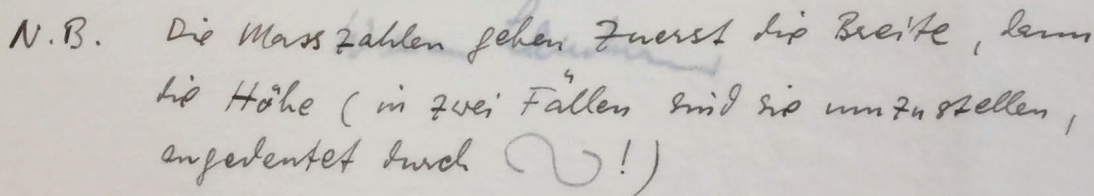 N.B. Die Masszahlen geben zuerst die Breite, dann
die Höhe (in zwei Fällen sind sie umzustellen,
angedeutet durch ∽!)